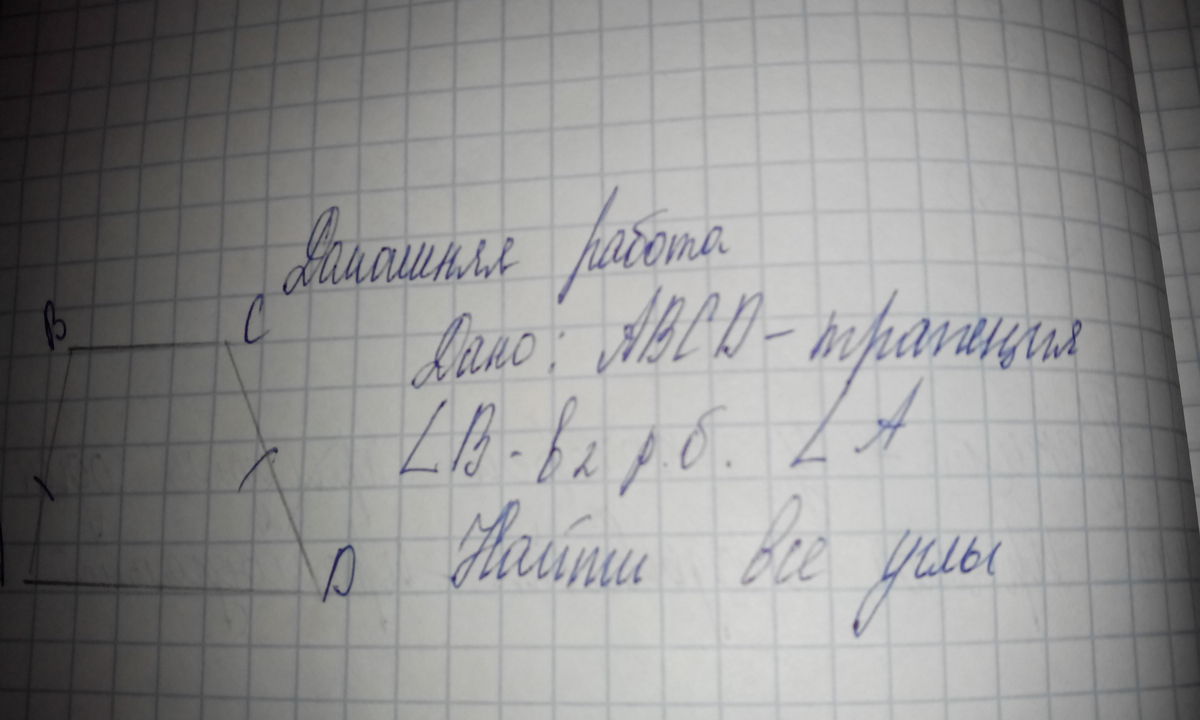 Домашняя работа
B C
Дано: ABCD - трапеция
∠B - в 2 р. б. ∠A
Найти все углы
D